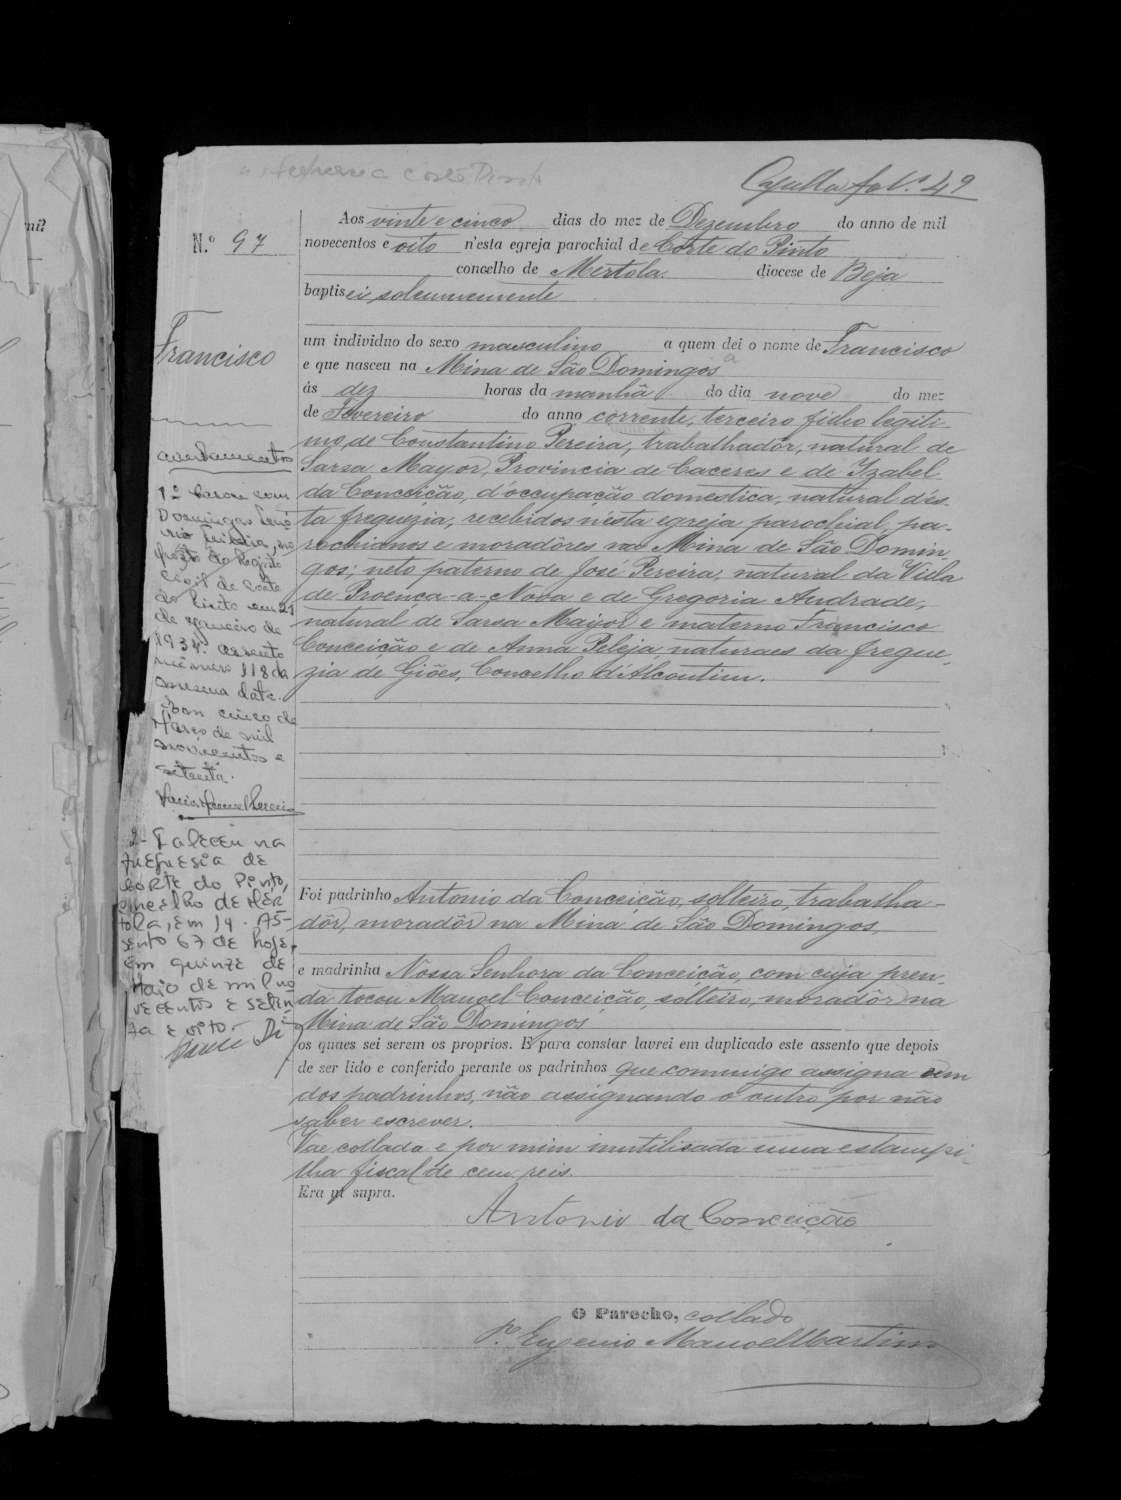 fol. 49
Aos vinte e cinco dias do mez de Dezembro do anno de mil
N.º 97
novecentos e oito n'esta egreja parochial de Corte do Pinto
concelho de Mertola diocese de Beja
baptisei solemnemente
um individuo do sexo masculino a quem dei o nome de Francisco
Francisco
e que nasceu na Mina de São Domingos
ás dez horas da manhã do dia nove do mez
de Fevereiro do anno corrente, terceiro filho legiti-
mo, de Constantino Pereira, trabalhadôr, natural de
Sarsa Mayor, Provincia de Caceres e de Izabel
da Conceição, d'occupação domestica, natural d'es-
ta freguezia, recebidos n'esta egreja parochial, pa-
rochianos e moradôres na Mina de São Domin
gos; neto paterno de José Pereira, natural da Villa
de Proença-a-Nova e de Gregoria Andrade,
natural de Sarsa Mayor e materno Francisco
Conceição e de Anna Peleja, naturaes da fregue-
zia de Giões, Concelho d'Alcoutim.
Averbamentos
1º Casou com
Domingas
no
posto do Registo
Civil de Corte
do Pinto em 21
de Janeiro de
1934. assento
número 118 da
mesma data.
cinco de
Março de mil
novecentos e
setenta.
2- Faleceu na
freguesia de
Corte do Pinto,
concelho de Mér
tola, em 14. As-
sento 67 de hoje.
Em quinze de
Maio de mil no
vecentos e seten
ta e oito.
Foi padrinho Antonio da Conceição, solteiro, trabalha-
dôr, moradôr na Mina de São Domingos,
e madrinha Nossa Senhora da Conceição, com cuja pren-
da tocou Manoel Conceição, solteiro, moradôr na
Mina de São Domingos
os quaes sei serem os proprios. E para constar lavrei em duplicado este assento que depois
de ser lido e conferido perante os padrinhos que commigo assigna um
dos padrinhos, não assignando o outro por não
saber escrever.
Vae collada e por mim inutilisada uma estampi-
lha fiscal de cem reis.
Era ut supra.
Antonio da Conceição
O Parocho, collado
P.e Eugenio Manoel Martins